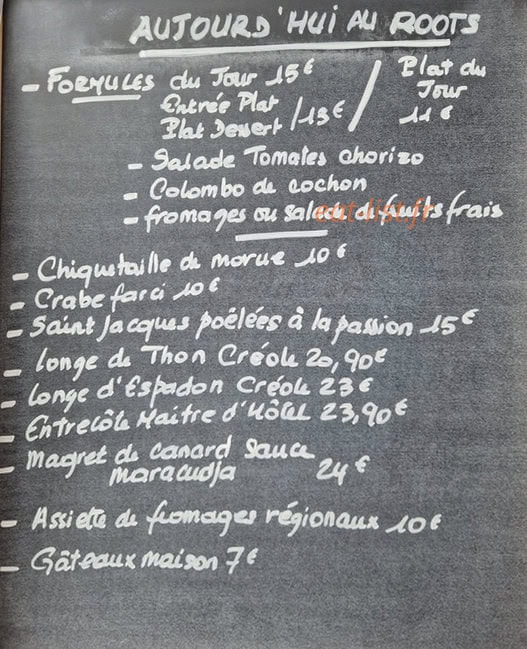 AUJOURD'HUI AU ROOTS
- FORMULES du Jour 15€ / Plat du Jour 11€
Entrée Plat
Plat Dessert / 13€
- Salade Tomates chorizo
- Colombo de cochon
- fromages ou salade de fruits frais
eat-list.fr
- Chiquetaille de morue 10€
- Crabe farci 10€
- Saint Jacques poëlées à la passion 15€
- longe de Thon Créole 20,90€
- longe d'Espadon Créole 23€
- Entrecôte Maitre d'Hôtel 23,90€
- Magret de canard sauce
maracudja 24€
- Assiette de fromages régionaux 10€
- Gâteaux maison 7€